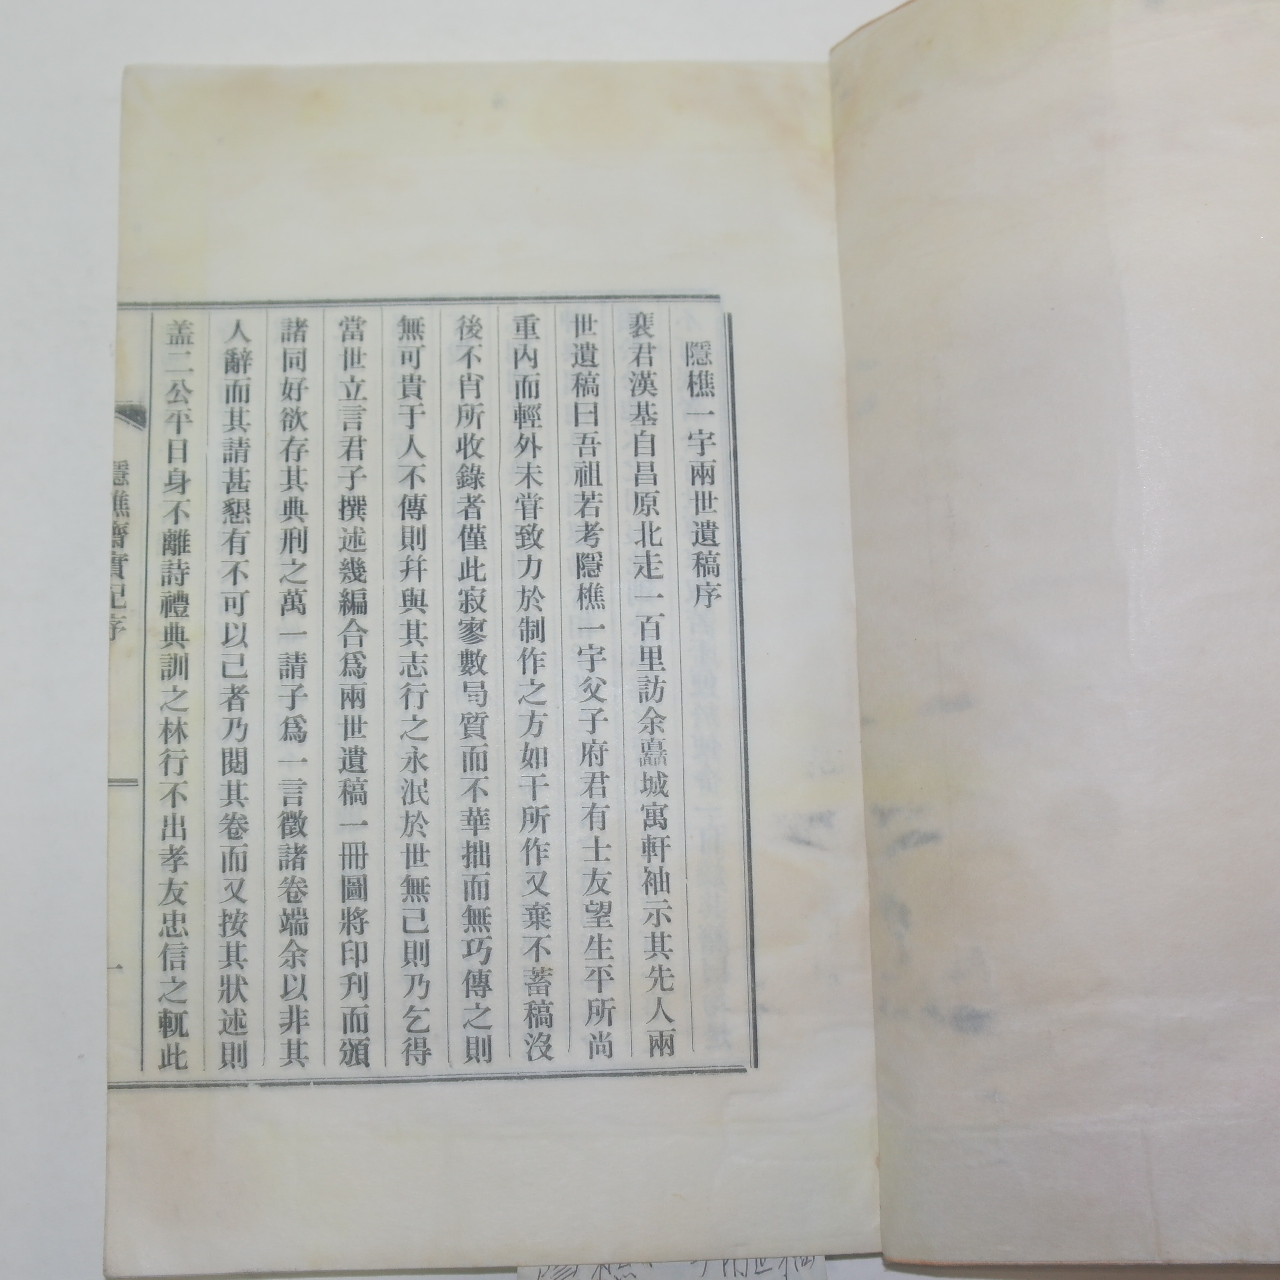 隱樵一宇兩世遺稿序
裵君漢基自昌原北走一百里訪余嚞城寓軒袖示其先人兩
世遺稿曰吾祖若考隱樵一宇父子府君有士友望生平所尚
重內而輕外未甞致力於制作之方如干所作又棄不蓄稿沒
後不肖所收錄者僅此寂寥數咼質而不華拙而無巧傳之則
無可貴于人不傳則幷與其志行之永泯於世無已則乃乞得
當世立言君子撰述幾編合爲兩世遺稿一冊圖將印刋而頒
諸同好欲存其典刑之萬一請子爲一言徵諸卷端余以非其
人辭而其請甚懇有不可以已者乃閱其卷而又按其狀述則
盖二公平日身不離詩禮典訓之林行不出孝友忠信之軏此
隱樵齋實記序
一